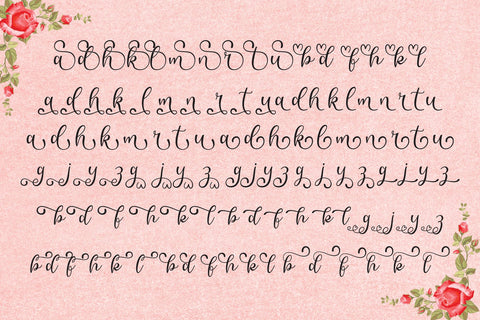 a d h k l m n r t u b d f h k l
a d h k l m n r t u a d h k l m n r t u
a d h k m n r t u a d h k l m n r t u
g j y z g j y z g j y z g j y z g j y z
b d f h k l b d f h k l g j y z
b d f h k l b d f h k l b d f h k l